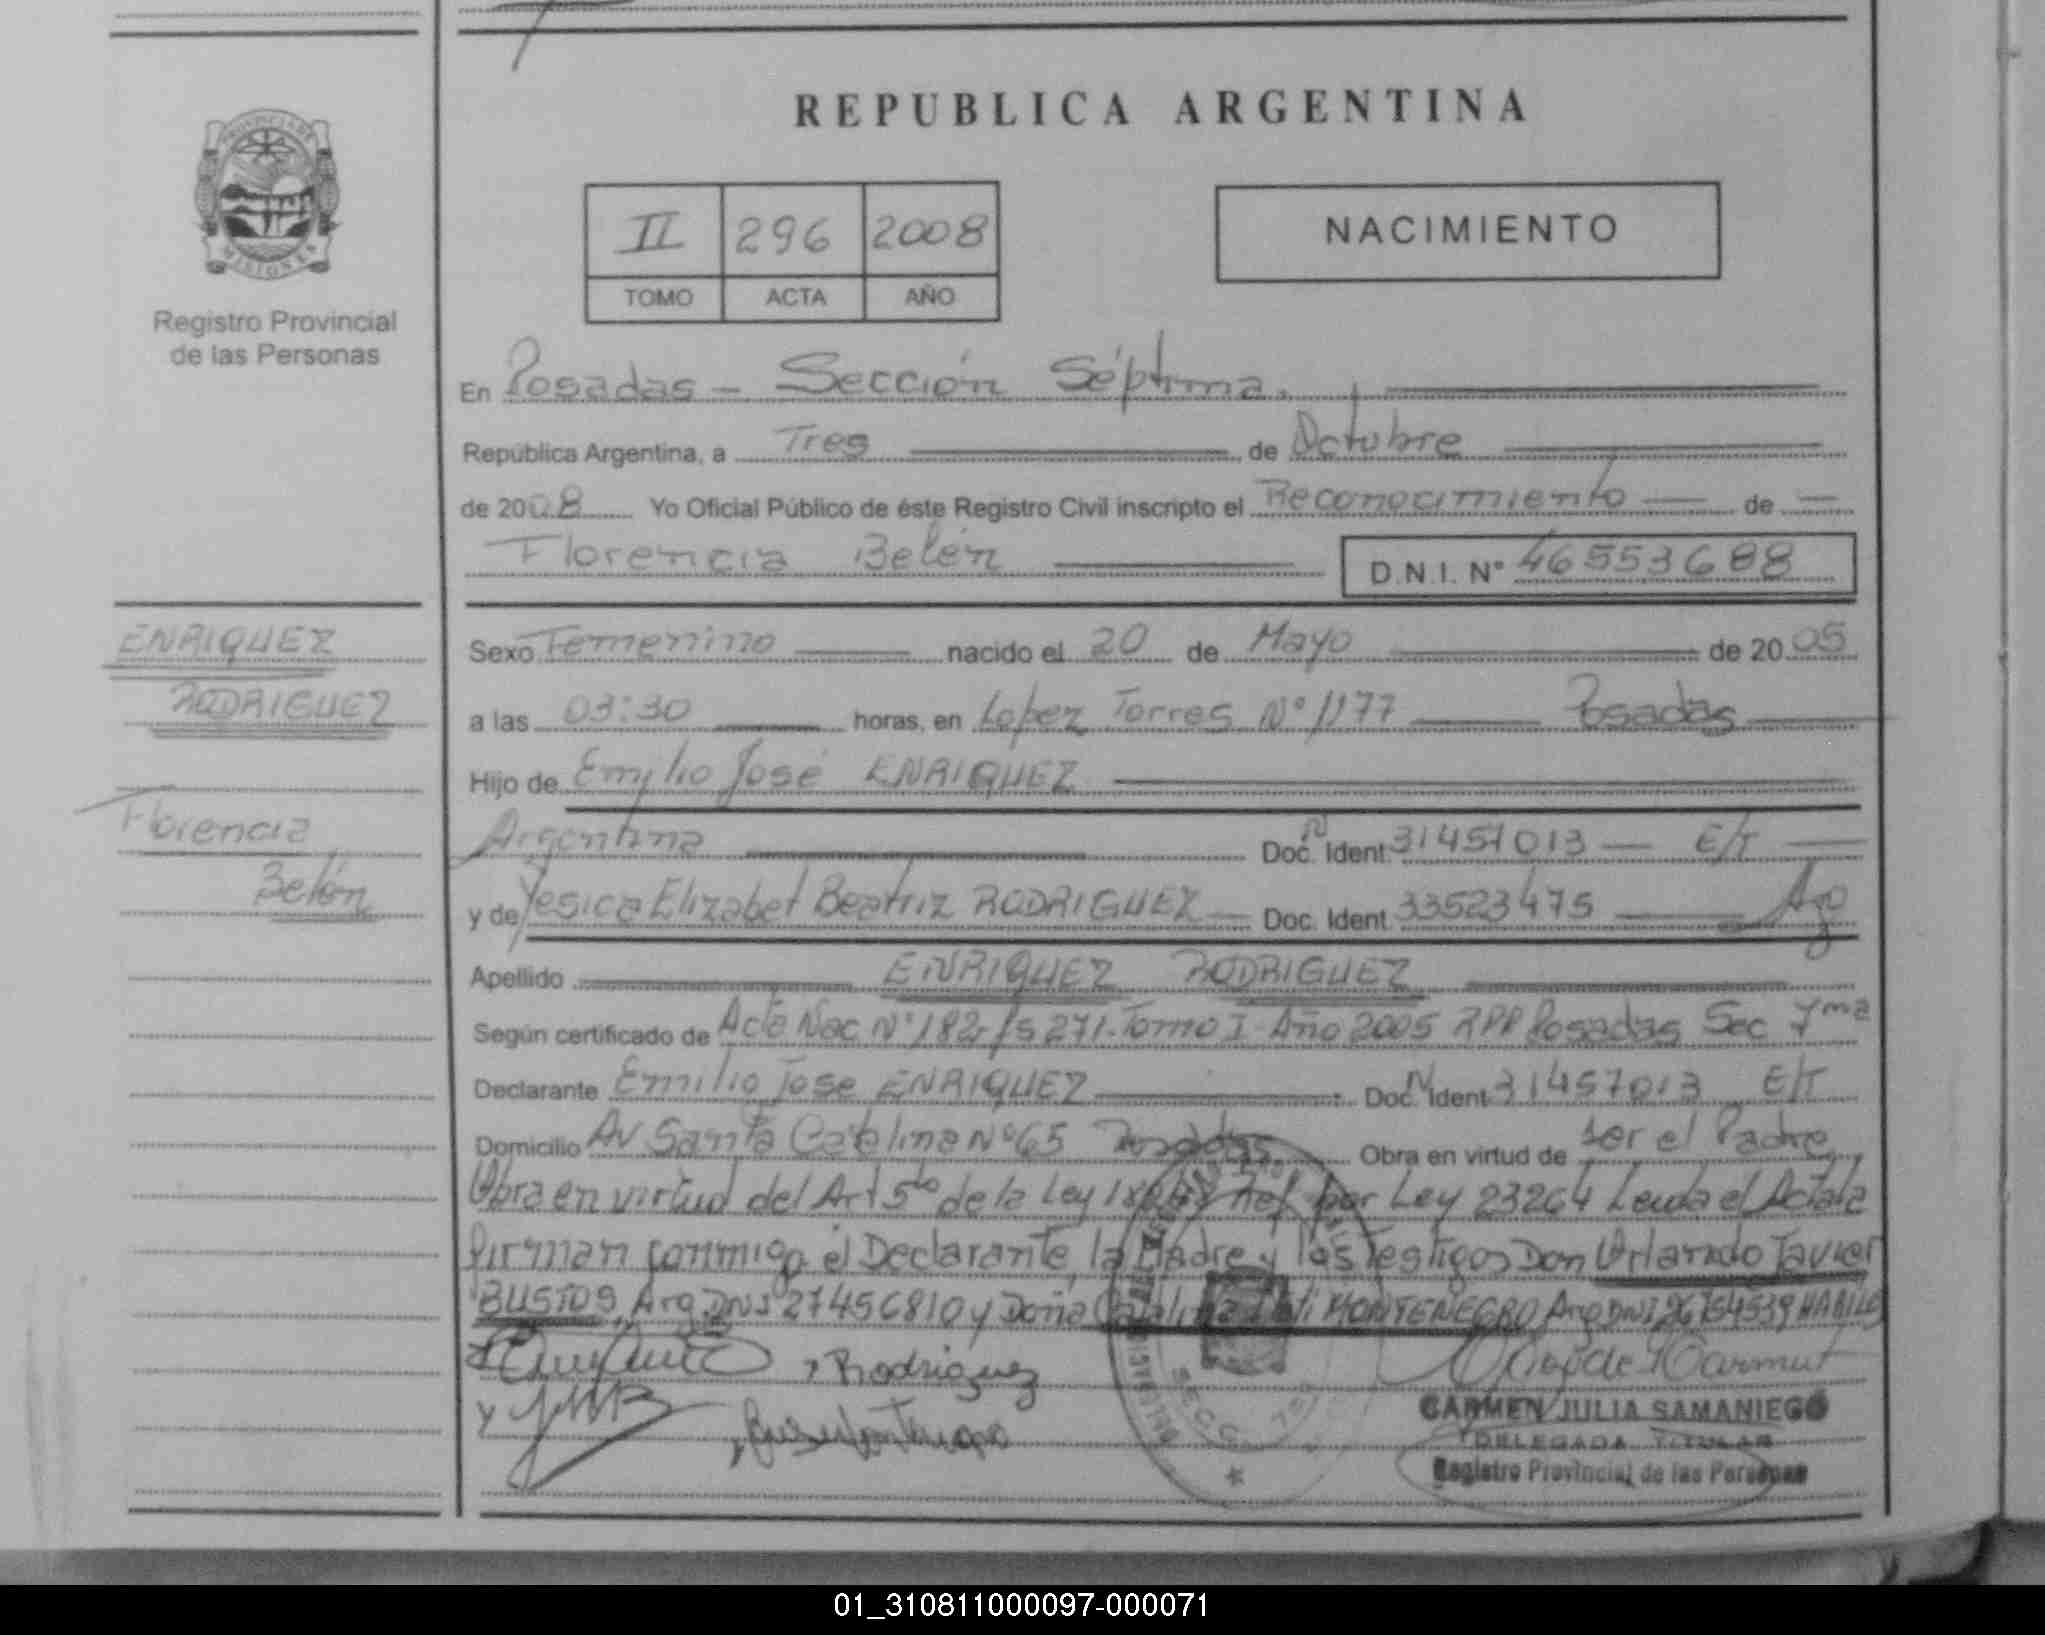 REPUBLICA ARGENTINA
PROVINCIA DE
MISIONES
Registro Provincial
de las Personas
II 296 2008
TOMO ACTA AÑO
NACIMIENTO
En Posadas - Sección Séptima.
República Argentina, a Tres de Octubre
de 2008 Yo Oficial Público de éste Registro Civil inscripto el Reconocimiento de
Florencia Belén D.N.I. N° 46553688
ENRIQUEZ
RODRIGUEZ
Florencia
Belén
Sexo Femenino nacido el 20 de Mayo de 2005
a las 03:30 horas, en Lopez Torres N° 1177 Posadas
Hijo de Emilio José ENRIQUEZ
Argentina Doc. Ident. 31457013 E/T
y de Yesica Elizabet Beatriz RODRIGUEZ Doc. Ident. 33523475 Arg
Apellido ENRIQUEZ RODRIGUEZ
Según certificado de Acta Nac N° 182 fs 271. Tomo I Año 2005 RPP Posadas Sec 7ma
Declarante Emilio Jose ENRIQUEZ Doc. Ident 31457013 E/T
Domicilio Av Santa Catalina N° 65 Posadas Obra en virtud de ser el Padre
Obra en virtud del Art 5to de la Ley por Ley 23264 Leida el Acta la
firman conmigo el Declarante, la Madre y los Testigos Don Orlando Javier
BUSTOS, Arg DNI 27456810 y Doña Catalina MONTENEGRO Arg DNI 26754539 HABILES
Rodriguez
CARMEN JULIA SAMANIEGO
DELEGADA TITULAR
Registro Provincial de las Personas
01_310811000097-000071